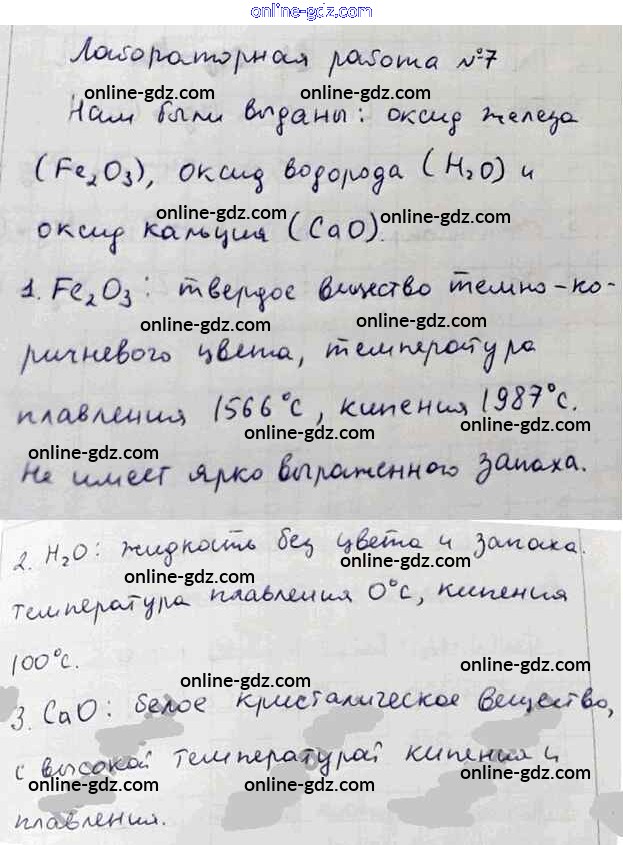 online-gdz.com
Лабораторная работа №7
online-gdz.com online-gdz.com
Нам были выданы: оксид железа
(Fe₂O₃), оксид водорода (H₂O) и
online-gdz.com online-gdz.com
оксид кальция (CaO).
1. Fe₂O₃: твердое вещество темно-ко-
online-gdz.com online-gdz.com
ричневого цвета, температура
плавления 1566°С, кипения 1987°С.
online-gdz.com online-gdz.com online-gdz.com
Не имеет ярко выраженного запаха.
2. H₂O: жидкость без цвета и запаха.
online-gdz.com online-gdz.com
температура плавления 0°С, кипения
100°С.
online-gdz.com
3. CaO: белое кристалическое вещество,
online-gdz.com online-gdz.com
с высокой температурай кипения и
online-gdz.com online-gdz.com online-gdz.com
плавления.